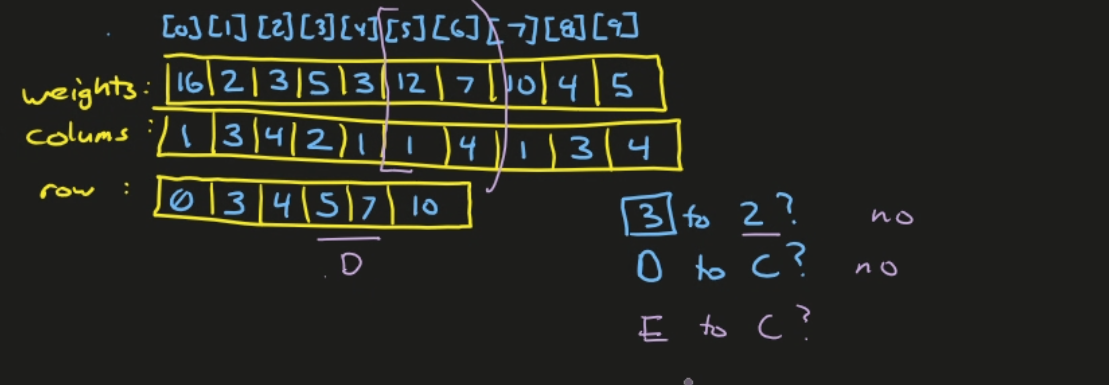 [0] [1] [2] [3] [4] [5] [6] [7] [8] [9]
weights: 16 2 3 5 3 12 7 10 4 5
colums: 1 3 4 2 1 1 4 1 3 4
row: 0 3 4 5 7 10
D
3 to 2? no
D to C? no
E to C?